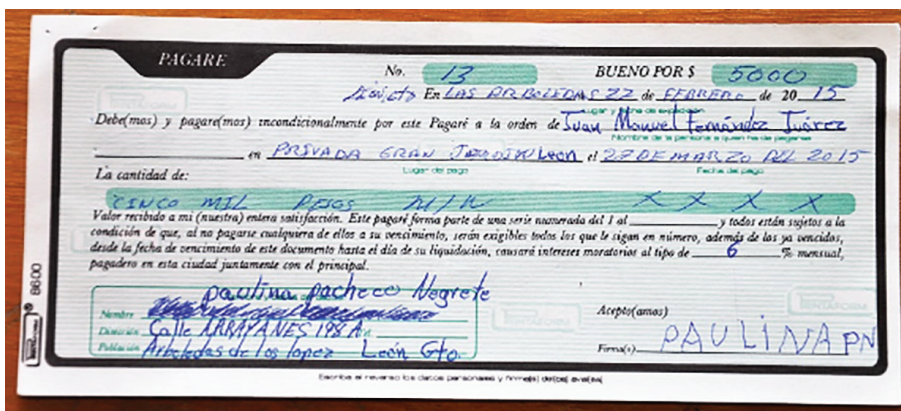 PAGARE
No. 13 BUENO POR $ 5000
León, Gto En LAS ARBOLEDAS 22 de FEBRERO de 20 15
Lugar y fecha de expedición
Debe(mos) y pagare(mos) incondicionalmente por este Pagaré a la orden de Juan Manuel Fernández Juárez
Nombre de la persona a quien ha de pagarse
en PRIVADA GRAN JARDIN León el 27 DE MARZO DEL 2015
Lugar del pago Fecha del pago
La cantidad de:
CINCO MIL PESOS M/N X X X X
Valor recibido a mi (nuestra) entera satisfacción. Este pagaré forma parte de una serie numerada del 1 al y todos están sujetos a la
condición de que, al no pagarse cualquiera de ellos a su vencimiento, serán exigibles todos los que le sigan en número, además de los ya vencidos,
desde la fecha de vencimiento de este documento hasta el día de su liquidación, causará intereses moratorios al tipo de 6 % mensual,
pagadero en esta ciudad juntamente con el principal.
paulina pacheco Negrete
Nombre
Dirección Calle ARRAYANES 198 A
Población Arboledas de los lopez León Gto
Acepto(amos)
Firma(s) PAULINA PN
8600
Escriba al reverso los datos personales y firma(s) del(os) aval(es)